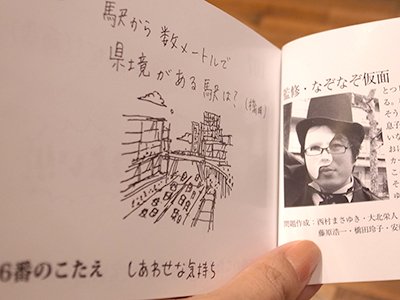 駅から数メートルで
県境がある駅は?(橋田)
6番のこたえ しあわせな気持ち
監修・なぞなぞ仮面
とつ
る。
そう
息子
いな
おし
カー
こ
そ
ゆ
問題作成:西村まさゆき・大北栄人
藤原浩一・橋田玲子・安